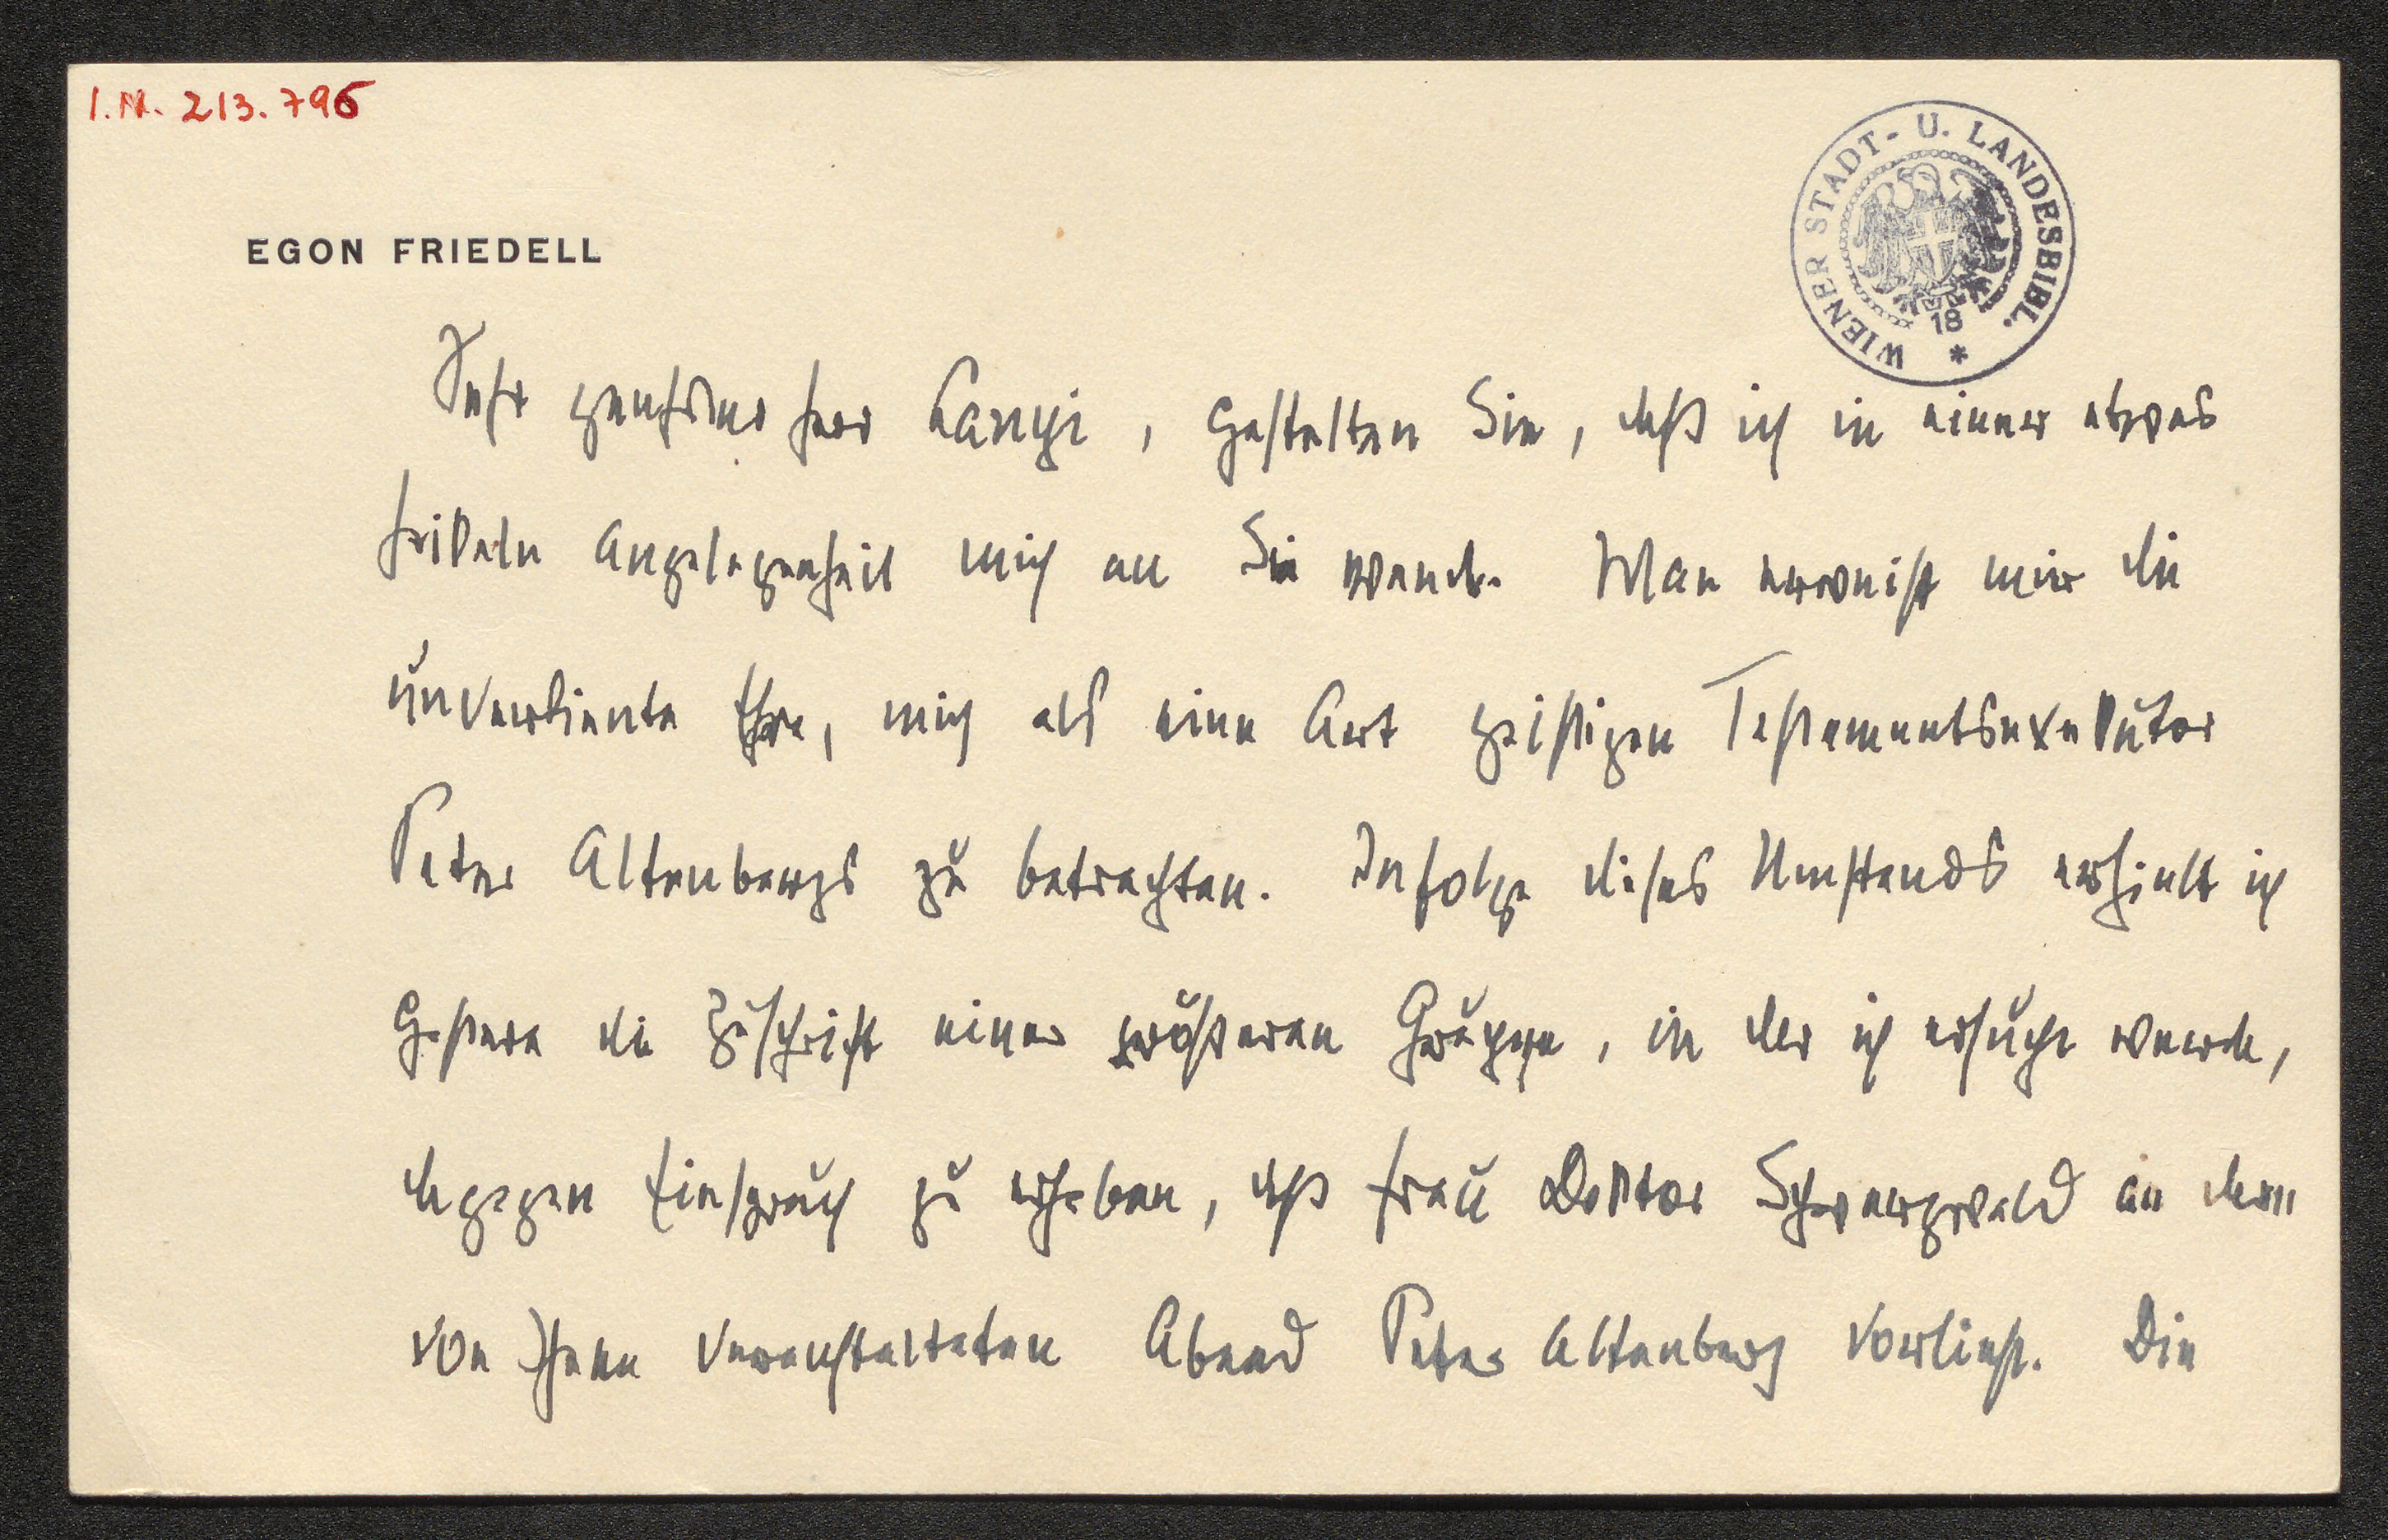 I.N. 213.796
WIENER STADT- U. LANDESBIBL.
18
EGON FRIEDELL
Sehr geehrter Herr Lanyi, gestatten Sie, daß ich in einer etwas
heikeln Angelegenheit mich an Sie wende. Man erweist mir die
unverdiente Ehre, mich als eine Art geistigen Testamentsexekutor
Peter Altenbergs zu betrachten. Infolge dieses Umstands erhielt ich
gestern die Zuschrift einer größeren Gruppe, in der ich ersucht werde,
dagegen Einspruch zu erheben, daß Frau Doktor Schwarzwald an dem
von Ihnen veranstalteten Abend Peter Altenberg vorliest. Die